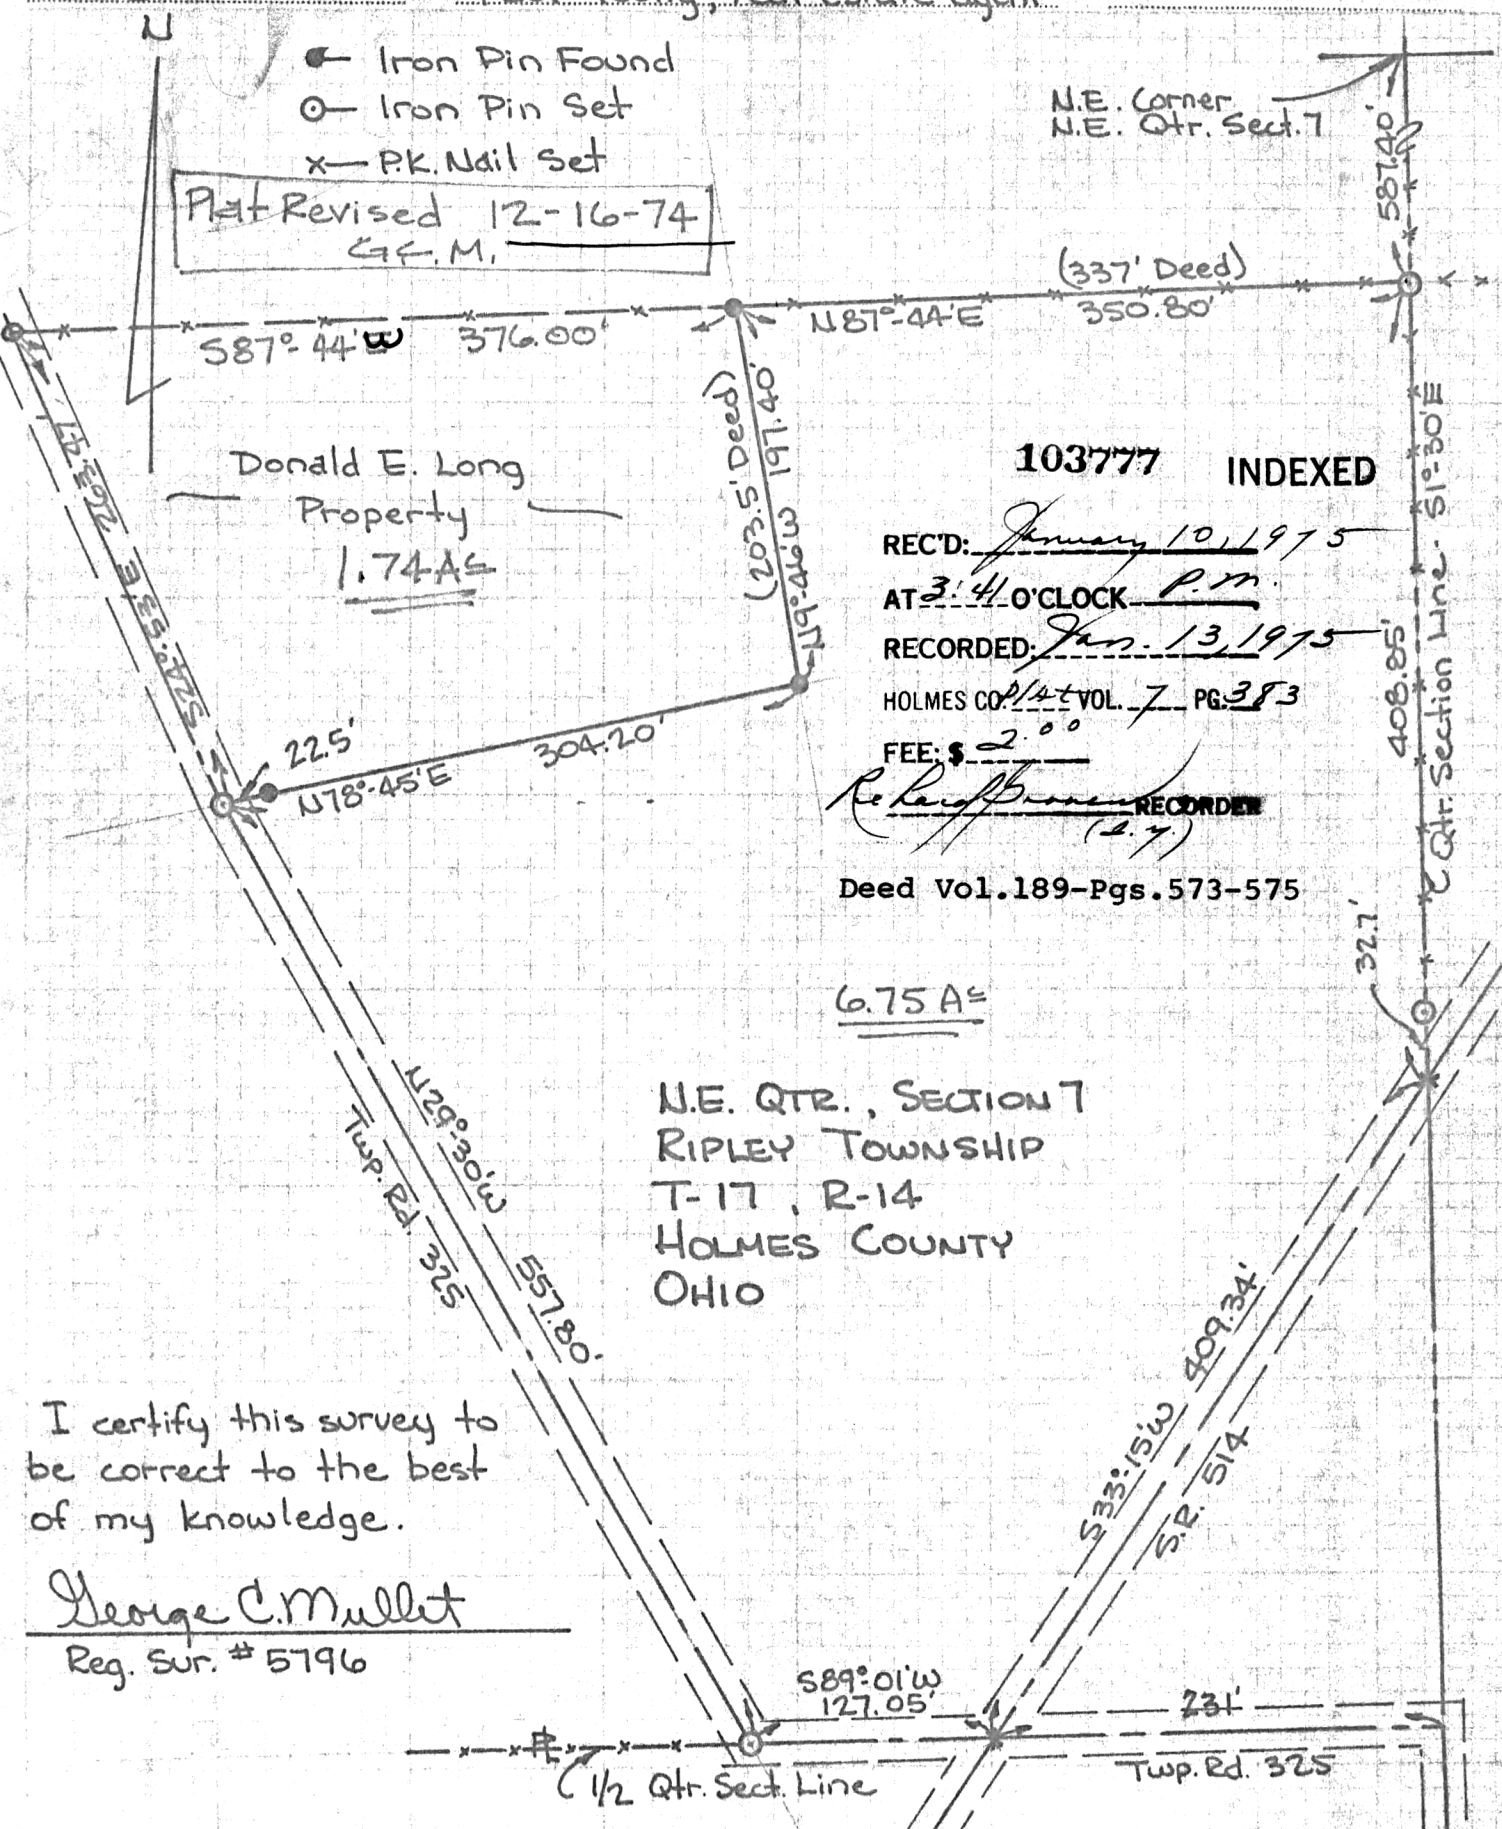 real estate agent
N
Iron Pin Found
Iron Pin Set
x— P.K. Nail Set
Plat Revised 12-16-74
G.C.M.
N.E. Corner
N.E. Qtr. Sect. 7
587.40'
(337' Deed)
N87°-44'E 350.80'
S87°-44'W 376.00'
S24°-53'E 263.47'
(203.5' Deed)
N9°-46'W 197.40'
Donald E. Long
Property
1.74 Ac
103777 INDEXED
REC'D: January 10, 1975
AT 3:41 O'CLOCK P.M.
RECORDED: Jan. 13, 1975
HOLMES CO. Plat VOL. 7 PG. 383
FEE: $ 2.00
RECORDER
Deed Vol.189-Pgs.573-575
S1°-30'E
408.85'
Qtr. Section Line
32.7'
22.5'
N78°-45'E 304.20'
6.75 Ac
N.E. QTR., SECTION 7
RIPLEY TOWNSHIP
T-17, R-14
HOLMES COUNTY
OHIO
N29°-30'W 557.80
Twp. Rd. 325
S33°-15'W 409.34'
S.R. 514
I certify this survey to
be correct to the best
of my knowledge.
George C. Mullet
Reg. Sur. # 5796
S89°-01'W
127.05'
231'
Twp. Rd. 325
1/2 Qtr. Sect. Line